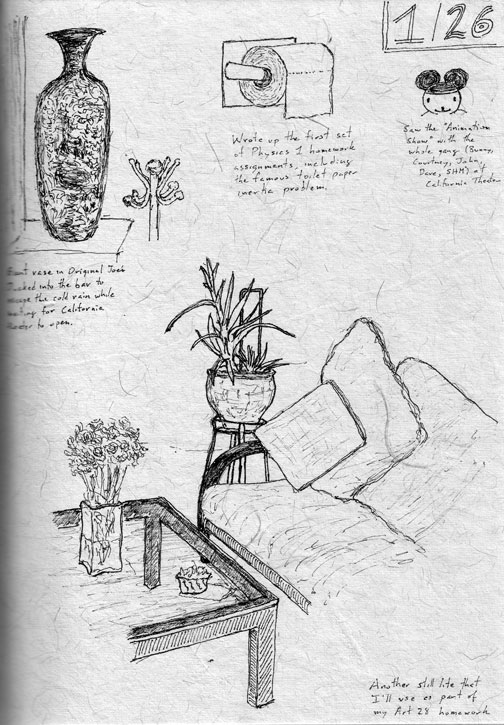 1/26
Wrote up the first set
of Physics 1 homework
assignments, including
the famous toilet paper
inertia problem.
Saw the "Animation
Show" with the
whole gang (Bunny,
Courtney, Jake,
Dave, SHM) at
California Theater
Giant vase in Original Joe's
Ducked into the bar to
escape the cold rain while
waiting for California
Theater to open.
Another still life that
I'll use as part of
my Art 28 homework